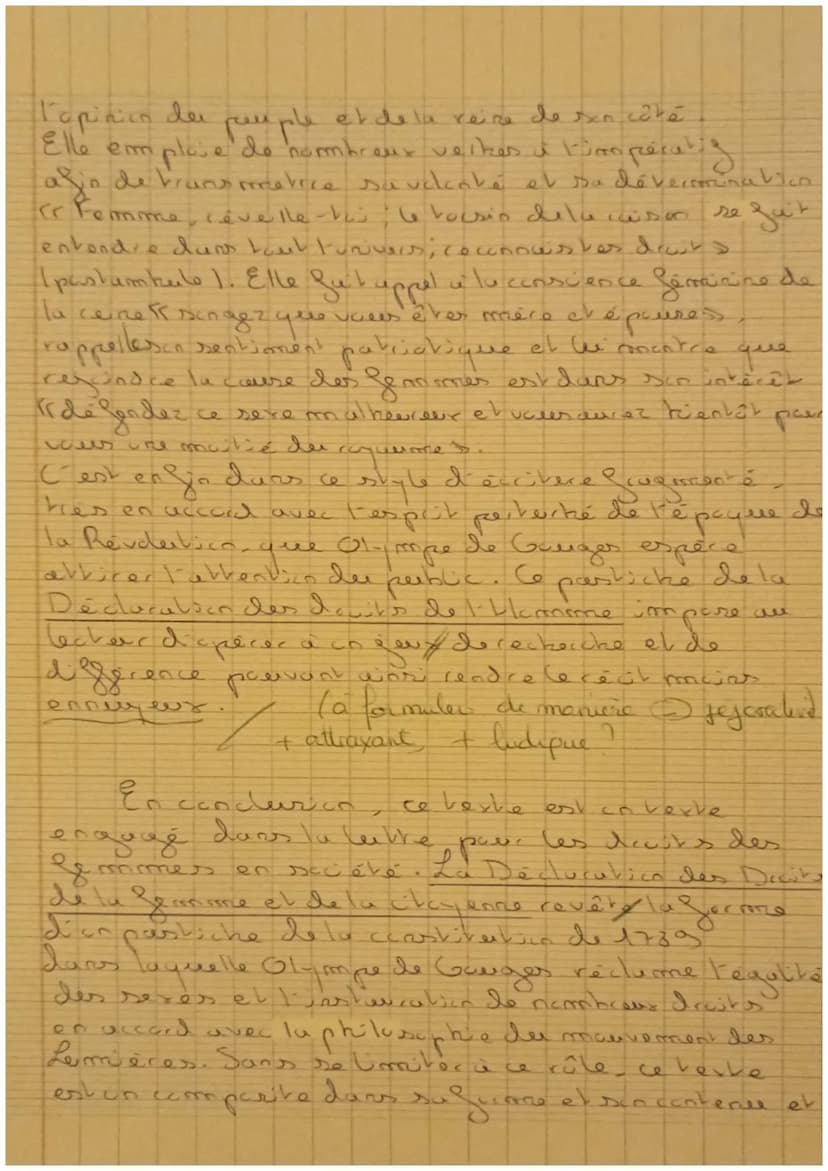 l'opinion du peuple et de la reine de son côté.
Elle emploie de nombreux verbes à l'impératif
afin de transmettre sa volonté et sa détermination
« Femme, réveille-toi ; le tocsin de la raison se fait
entendre dans tout l'univers ; reconnais tes droits »
(postambule). Elle fait appel à la conscience féminine de
la reine « songez que vous êtes mère et épouse »,
rappelle son sentiment patriotique et lui montre que
rejoindre la cause des femmes est dans son intérêt
« défendez ce sexe malheureux et vous aurez bientôt pour
vous une moitié du royaume ».
C'est enfin dans ce style d'écriture fragmenté,
très en accord avec l'esprit de l'époque de
la Révolution, que Olympe de Gouges espère
attirer l'attention du public. Ce pastiche de la
Déclaration des droits de l'Homme impose au
lecteur d'opérer à un jeu de recherche et de
différence pouvant ainsi rendre le récit moins
ennuyeux. (à formuler de manière
+ attrayant, + ludique ?
En conclusion, ce texte est un texte
engagé dans la lutte pour les droits des
femmes en société. La Déclaration des Droits
de la femme et de la citoyenne revêt la forme
d'un pastiche de la constitution de 1789
dans laquelle Olympe de Gouges réclame l'égalité
des sexes et l'instauration de nombreux droits
en accord avec la philosophie du mouvement des
Lumières. Sans se limiter à ce rôle, ce texte
est un composite dans sa forme et son contenu et